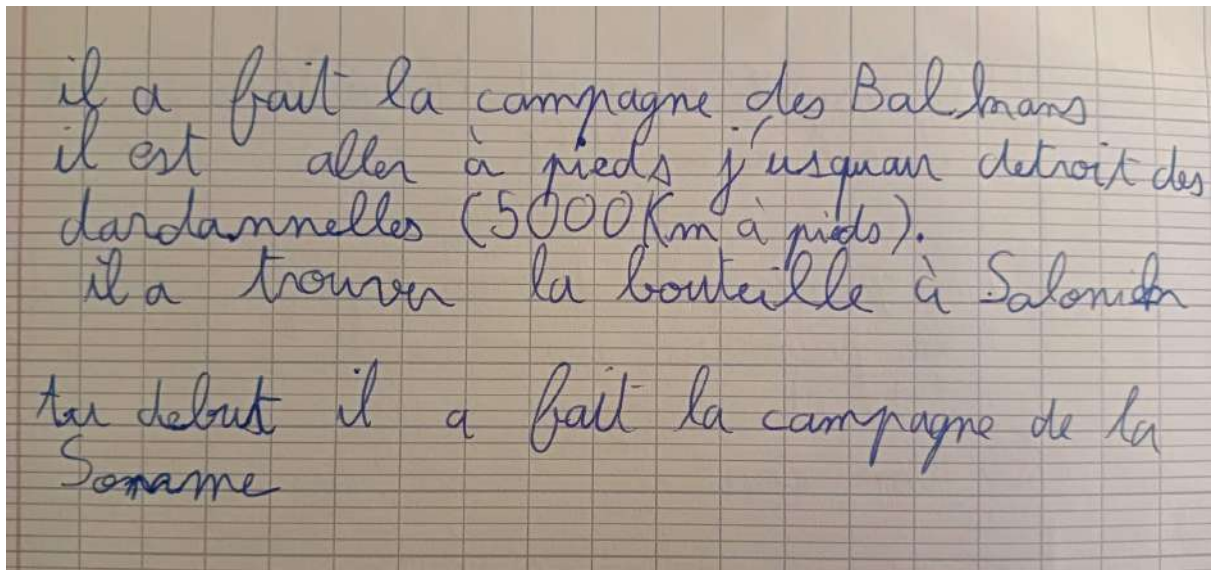 il a fait la campagne des Balkans
il est aller à pieds j'usquau detroit des
dardannelles (5000Km à pieds).
il a trouver la bouteille à
au debut il a fait la campagne de la